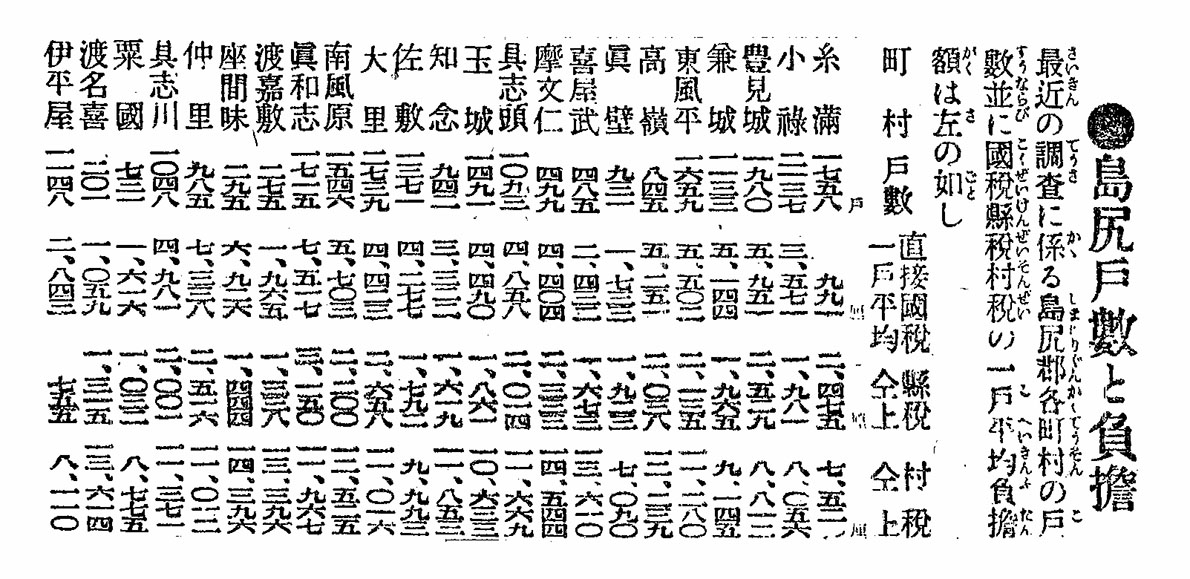 ●島尻戶數と負擔
最近の調査に係る島尻郡各町村の戶
數並に國稅縣稅村稅の一戶平均負擔
額は左の如し
町村 戶數 直接國稅一戶平均 縣稅仝上 村稅仝上
糸滿 一七五八戶 九九一厘 二、四七五厘 七、五二一厘
小祿 二二三七 三、五七一 一、九八一 八、〇五六
豊見城 一九八〇 五、九五一 二、五一九 八、八一二
兼城 一一三三 五、一四四 一、九六五 九、一四五
東風平 一六五九 五、五〇二 一二、二八〇
高嶺 八四五 五、二五一 二、〇三八 一二、二三九
眞壁 九三一 一、七三三 一、九一三 七、〇九〇
喜屋武 四八五 二、四三二 一、六七三 一三、六一〇
摩文仁 四九九 四、四〇四 一、三三三 一四、五四四
具志頭 一〇九三 四、八五八 二、〇一四 一一、六六九
玉城 一四九一 四、四九〇 一、八六一 一〇、六三三
知念 九四二 三、三二二 一、六一九 一一、八五三
佐敷 一三七一 四、二七七 一、七九二 九、九九三
大里 一七三九 四、四三三 二、六五八 一一、〇一六
南風原 一五四六 五、七〇三 二、二〇〇 一三、五三五
眞和志 一七一五 七、五一七 三、一五〇 一一、九六七
渡嘉敷 二七五 一、九六五 一、三三八 一三、三九六
座間味 二九五 六、九二六 一、四四四 一四、三九六
仲里 九八五 七、三三八 二、五一六 一一、〇一二
具志川 一〇四八 四、九八一 二、〇〇一 一一、三七一
粟國 七三一 一、六一六 一、〇三二 八、七七五
渡名喜 二〇一 一、〇五九 一、三一五 一三、六一四
伊平屋 一二四八 二、八四三 七五五 八、一一〇